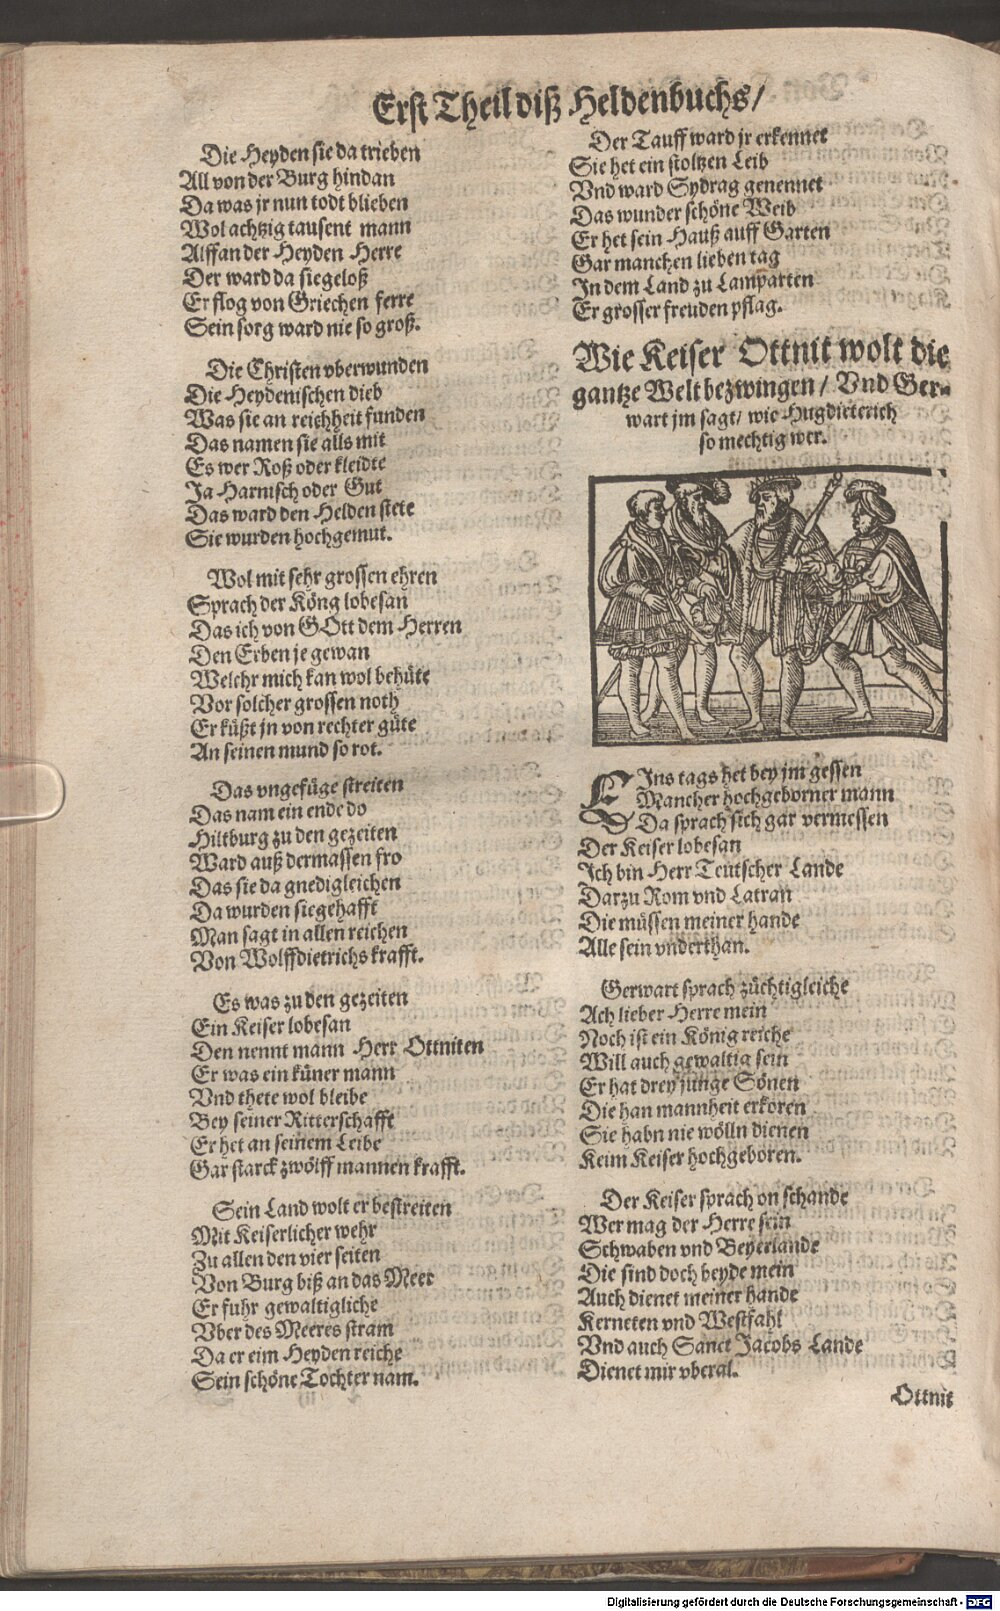 Erst Theil diß Heldenbuchs/
Die Heyden sie da trieben
All von der Burg hindan
Da was jr nun todt blieben
Wol achtzig tausent mann
Alffan der Heyden Herre
Der ward da siegeloß
Er flog von Griechen ferre
Sein sorg ward nie so groß.
Die Christen vberwunden
Die Heydenischen dieb
Was sie an reichheit funden
Das namen sie alls mit
Es wer Roß oder kleidte
Ja Harnisch oder Gut
Das ward den Helden stete
Sie wurden hochgemut.
Wol mit sehr grossen ehren
Sprach der Köng lobesan
Das ich von GOtt dem Herren
Den Erben je gewan
Welchr mich kan wol behüte
Vor solcher grossen noth
Er küßt jn von rechter güte
An seinen mund so rot.
Das vngefüge streiten
Das nam ein ende do
Hiltburg zu den gezeiten
Ward auß dermassen fro
Das sie da gnedigleichen
Da wurden siegehafft
Man sagt in allen reichen
Von Wolffdietrichs krafft.
Es was zu den gezeiten
Ein Keiser lobesan
Den nennt mann Herr Ottniten
Er was ein küner mann
Vnd thete wol bleibe
Bey seiner Ritterschafft
Er het an seinem Leibe
Gar starck zwölff mannen krafft.
Sein Land wolt er bestreiten
Mit Keiserlicher wehr
Zu allen den vier seiten
Von Burg biß an das Meer
Er fuhr gewaltigliche
Vber des Meeres stram
Da er eim Heyden reiche
Sein schöne Tochter nam.
Der Tauff ward jr erkennet
Sie het ein stoltzen Leib
Vnd ward Sydrag genennet
Das wunder schöne Weib
Er het sein Hauß auff Garten
Gar manchen lieben tag
In dem Land zu Lamparten
Er grosser freuden pflag.
Wie Keiser Ottnit wolt die
gantze Welt bezwingen/ Vnd Ger-
wart jm sagt/ wie Hugdieterich
so mechtig wer.
EIns tags het bey jm gessen
Mancher hochgeborner mann
Da sprach sich gar vermessen
Der Keiser lobesan
Ich bin Herr Teutscher Lande
Darzu Rom vnd Latran
Die müssen meiner hande
Alle sein vnderthan.
Gerwart sprach züchtigleiche
Ach lieber Herre mein
Noch ist ein König reiche
Will auch gewaltig sein
Er hat drey junge Sönen
Die han mannheit erkoren
Sie habn nie wölln dienen
Keim Keiser hochgeboren.
Der Keiser sprach on schande
Wer mag der Herre sein
Schwaben vnd Beyerlande
Die sind doch beyde mein
Auch dienet meiner hande
Kerneten vnd Westfahl
Vnd auch Sanct Jacobs Lande
Dienet mir vberal.
Ottnit
Digitalisierung gefördert durch die Deutsche Forschungsgemeinschaft - DFG